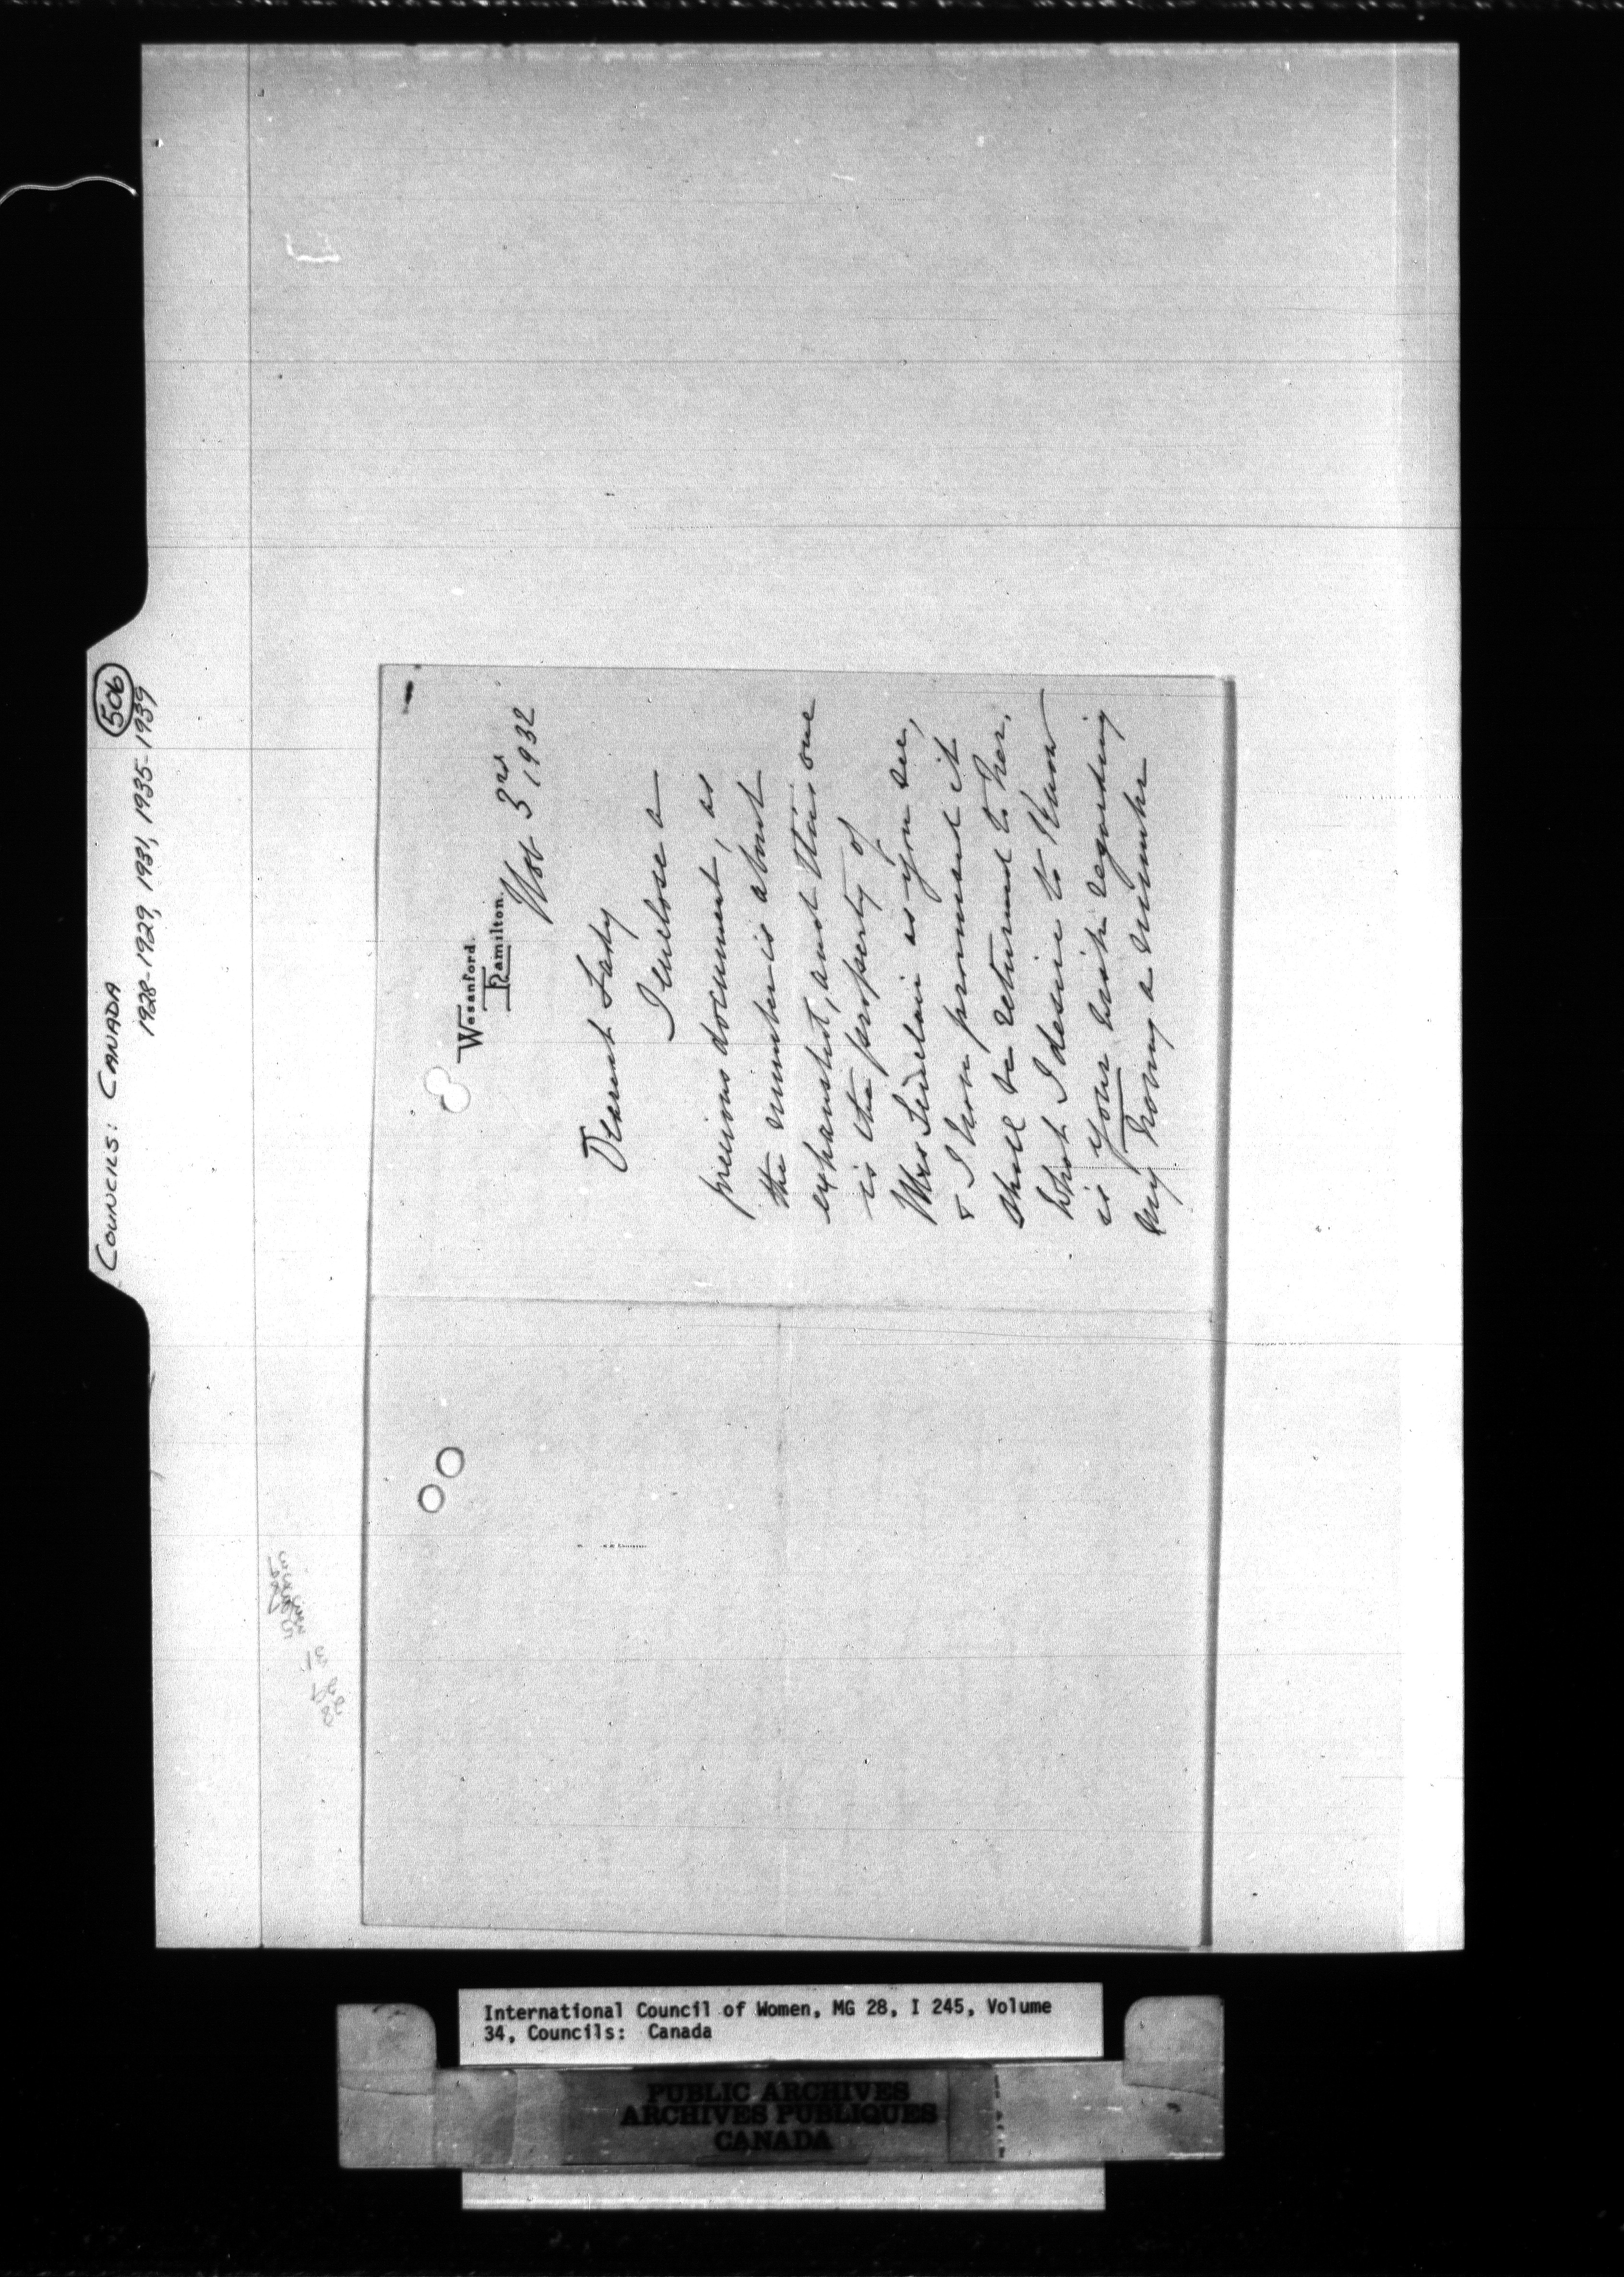 COUNCILS: CANADA 506
1928-1929, 1931, 1935-1939
Wesanford.
Hamilton.
Nov 3rd 1932
Dearest Lady
I enclose a
precious document, as
the number is about
exhausted, and this one
is the property of
Mrs as you see,
& I have promised it
shall be returned to her.
What I desire to know
is your wish regarding
my having a number
International Council of Women, MG 28, I 245, Volume
34, Councils: Canada
PUBLIC ARCHIVES
ARCHIVES PUBLIQUES
CANADA